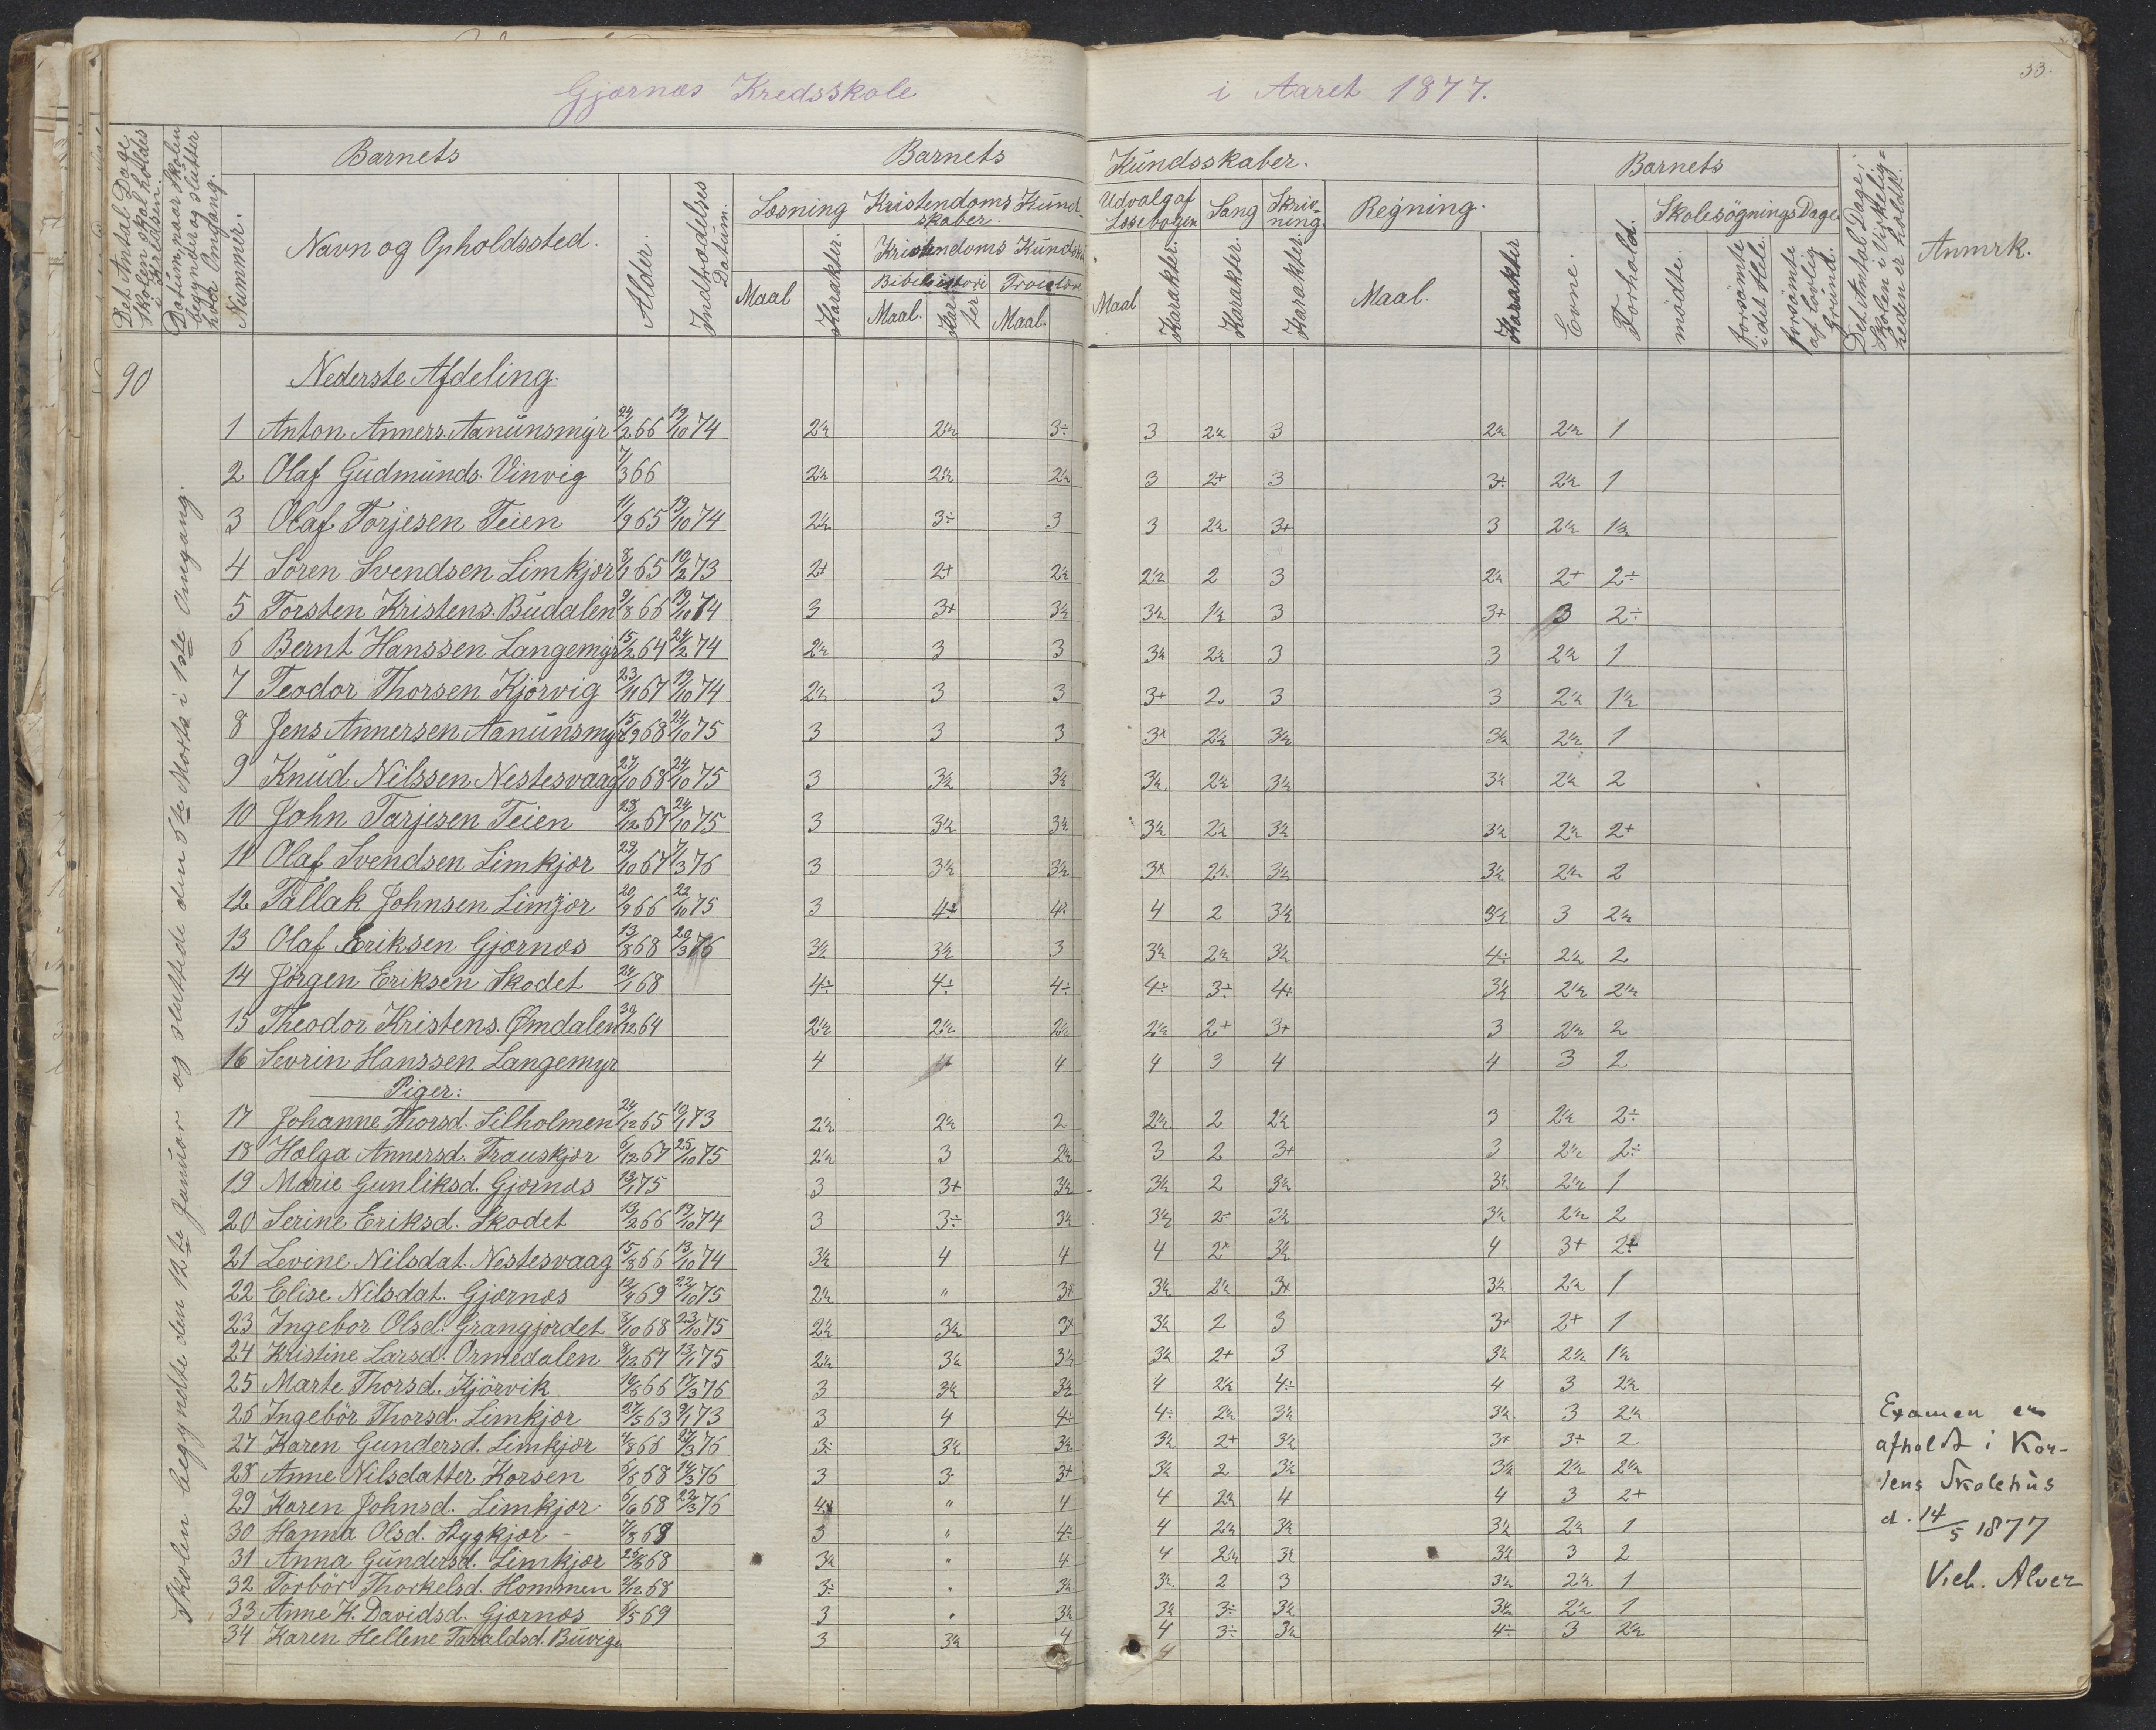 33.
Gjærnæs Kredsskole i Aaret 1877.
Det Antal Dage Skolen skal holdes i Kredsen.
Datum, naar Skolen begynder og slutter hver Omgang.
Nummer.
Barnets
Navn og Opholdssted.
Alder.
Indtrædelses Datum.
Barnets Kundsskaber.
Læsning
Maal
Karakter.
Kristendoms Kundskaber.
Bibelhistori
Maal.
Karakter
Troeslære
Maal.
Udvalg af Læsebogen
Maal
Karakter.
Sang
Karakter.
Skrivning.
Karakter.
Regning.
Maal.
Karakter
Barnets
Evne.
Forhold.
Skolesøgnings Dage
mødte.
forsømte i det Hele.
forsømte af lovlig Grund.
Det Antal Dage, Skolen i Virkeligheden er holdt.
Anmrk.
90
Skolen begyndte den 12te Januar og sluttede den 5te Marts i 1ste Omgang.
Nederste Afdeling.
1 Anton Anners. Aanunsmyr 24/2 66 19/10 74 2½ 2½ 3÷ 3 2½ 3 2½ 2½ 1
2 Olaf Gudmunds. Vinvig 7/3 66 2½ 2½ 2½ 3 2+ 3 3÷ 2½ 1
3 Olaf Torjesen Teien 11/9 65 19/10 74 2½ 3÷ 3 3 2½ 3+ 3 2½ 1½
4 Søren Svendsen Limkjær 8/1 65 10/2 73 2+ 2+ 2½ 2½ 2 3 2½ 2+ 2÷
5 Torsten Kristens. Budalen 9/8 66 19/10 74 3 3+ 3½ 3½ 1½ 3 3+ 3 2÷
6 Bernt Hanssen Langemyr 15/2 64 24/2 74 2½ 3 3 3½ 2½ 3 3 2½ 1
7 Teodor Thorsen Kjørvig 23/11 67 19/10 74 2½ 3 3 3+ 2 3 3 2½ 1½
8 Jens Annersen Aanunsmyr 15/9 68 24/10 75 3 3 3 3+ 2½ 3½ 3½ 2½ 1
9 Knud Nilssen Nestesvaag 27/10 68 24/10 75 3 3½ 3½ 3½ 2½ 3½ 3½ 2½ 2
10 John Tarjesen Teien 28/12 67 24/10 75 3 3½ 3½ 3½ 2½ 3½ 3½ 2½ 2+
11 Olaf Svendsen Limkjær 29/10 67 7/3 76 3 3½ 3½ 3+ 2½ 3½ 3½ 2½ 2
12 Tallak Johnsen Limjær 20/9 66 22/10 75 3 4÷ 4÷ 4 2 3½ 3½ 3 2½
13 Olaf Eriksen Gjærnæs 13/8 68 20/3 76 3½ 3½ 3 3½ 2½ 3½ 4÷ 2½ 2
14 Jørgen Eriksen Skodet 28/1 68 4÷ 4÷ 4÷ 4÷ 3÷ 4+ 3½ 2½ 2½
15 Theodor Kristens. Ømdalen 30/12 64 2½ 2½ 2½ 2½ 2+ 3+ 3 2½ 2
16 Sevrin Hanssen Langemyr 4 4 4 4 3 4 4 3 2
Piger:
17 Johanne Thorsd. Silholmen 24/12 65 10/1 73 2½ 2½ 2 2½ 2 2½ 3 2½ 2÷
18 Hælga Annersd. Trauskjær 6/12 67 25/10 75 2½ 3 2½ 3 2 3+ 3 2½ 2÷
19 Marie Gunliksd. Gjærnæs 13/1 75 3 3+ 3½ 3½ 2 3½ 3½ 2½ 1
20 Serine Eriksd. Skodet 13/2 66 19/10 74 3 3÷ 3½ 3½ 2÷ 3½ 3½ 2½ 2
21 Levine Nilsdat. Nestesvaag 15/8 66 13/10 74 3½ 4 4 4 2+ 3½ 4 3+ 2+
22 Elise Nilsdat. Gjærnæs 12/4 69 22/10 75 2½ " 3+ 3½ 2½ 3+ 3½ 2½ 1
23 Ingebor Olsd. Grangjordet 8/10 68 23/10 75 2½ 3½ 3+ 3½ 2 3 3+ 2+ 1
24 Kristine Larsd. Ormedalen 8/12 67 13/1 75 2½ 3½ 3½ 3½ 2+ 3 3½ 2½ 1½
25 Marte Thorsd. Kjørvik 19/6 66 17/3 76 3 3½ 3½ 4 2½ 4÷ 4 3 2½
26 Ingebör Thorsd. Limkjær 27/5 63 9/1 73 3 4 4÷ 4÷ 2½ 3½ 3½ 3 2½
27 Karen Gundersd. Limkjær 4/8 66 27/3 76 3÷ 3½ 3½ 3½ 2+ 3½ 3+ 3÷ 2
28 Anne Nilsdatter Korsen 6/6 68 14/3 76 3 3 3+ 3½ 2 3½ 3½ 2½ 2½
29 Karen Johnsd. Limkjær 6/6 68 22/3 76 4 " 4 4 2½ 4 4 3 2+
30 Hanna Olsd. Stygkjær 7/8 68 3 " 4÷ 4 2½ 3½ 3½ 2½ 1
31 Anna Gundersd. Limkjær 25/6 68 3½ " 4 4 2½ 3½ 3½ 3 2
32 Torbör Thorkelsd. Hommen 2/12 68 3÷ " 3½ 3½ 2 3 3½ 2½ 1
33 Anne K. Davidsd. Gjærnæs 6/5 69 3 " 3½ 3½ 3÷ 3½ 3½ 2½ 1
34 Karen Hellene Taraldsd. Buvige 3 3½ 4 4 3÷ 3½ 4÷ 3 2½
4
Examen er
afholdt i Kor-
sens Skolehus
d. 14/5 1877
Vieh. Alver